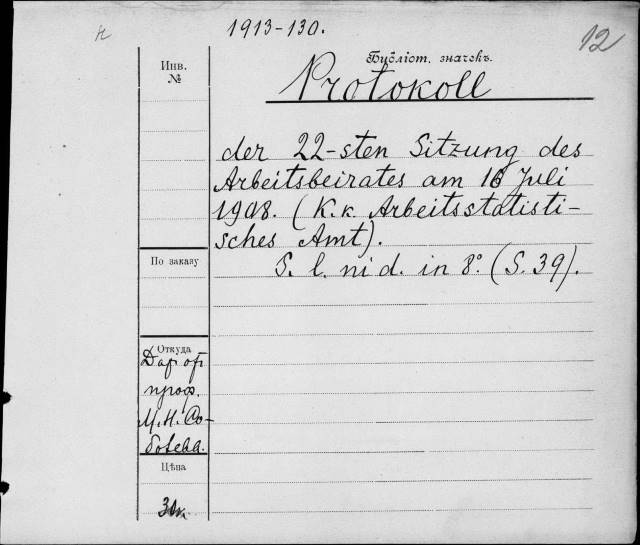 1913-130.
12
Инв.
№
Библіот. значекъ.
Protokoll
der 22-sten Sitzung des
Arbeitsbeirates am 16 Juli
1908. (K. k. Arbeitsstatisti-
sches Amt).
S. l. ni d. in 8º. (S. 39).
По заказу
Откуда
Дар от
проф.
М. Н. Со-
болева.
Цѣна